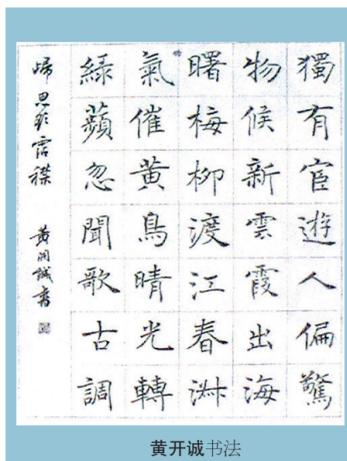 獨有宦遊人偏驚
物候新雲霞出海
曙梅柳渡江春淑
氣催黄鳥晴光轉
綠蘋忽聞歌古調
歸思欲霑襟 黄開誠書
黄开诚书法